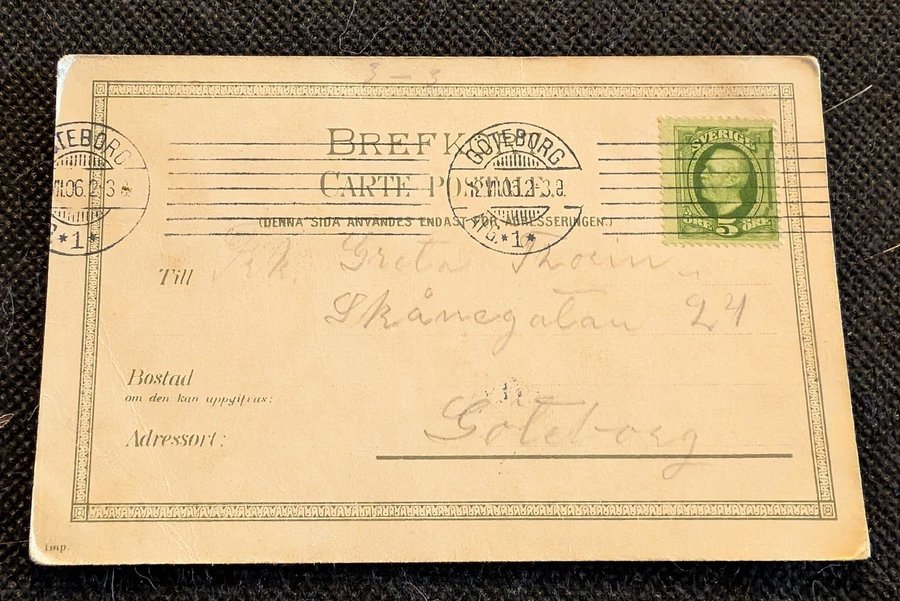 3-3
BREFKORT
CARTE POSTALE
(DENNA SIDA ANVÄNDES ENDAST FÖR ADRESSERINGEN.)
GÖTEBORG
*1*
GÖTEBORG
*1*
SVERIGE
5
ÖRE
Till
Frk. Greta Thorin
Skånegatan 24
Bostad
om den kan uppgifvas:
Adressort:
Göteborg
Imp.